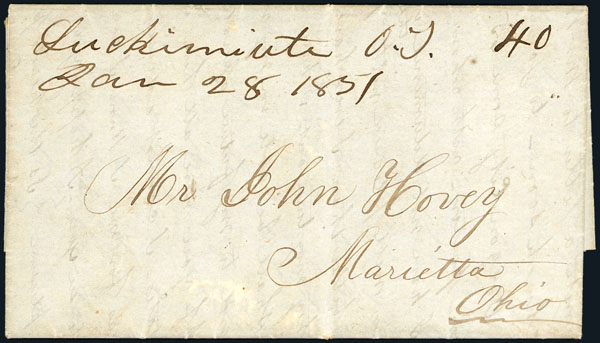 Luckimiute O.T. 40
Jan 28 1851
Mr. John Hovey
Marietta
Ohio